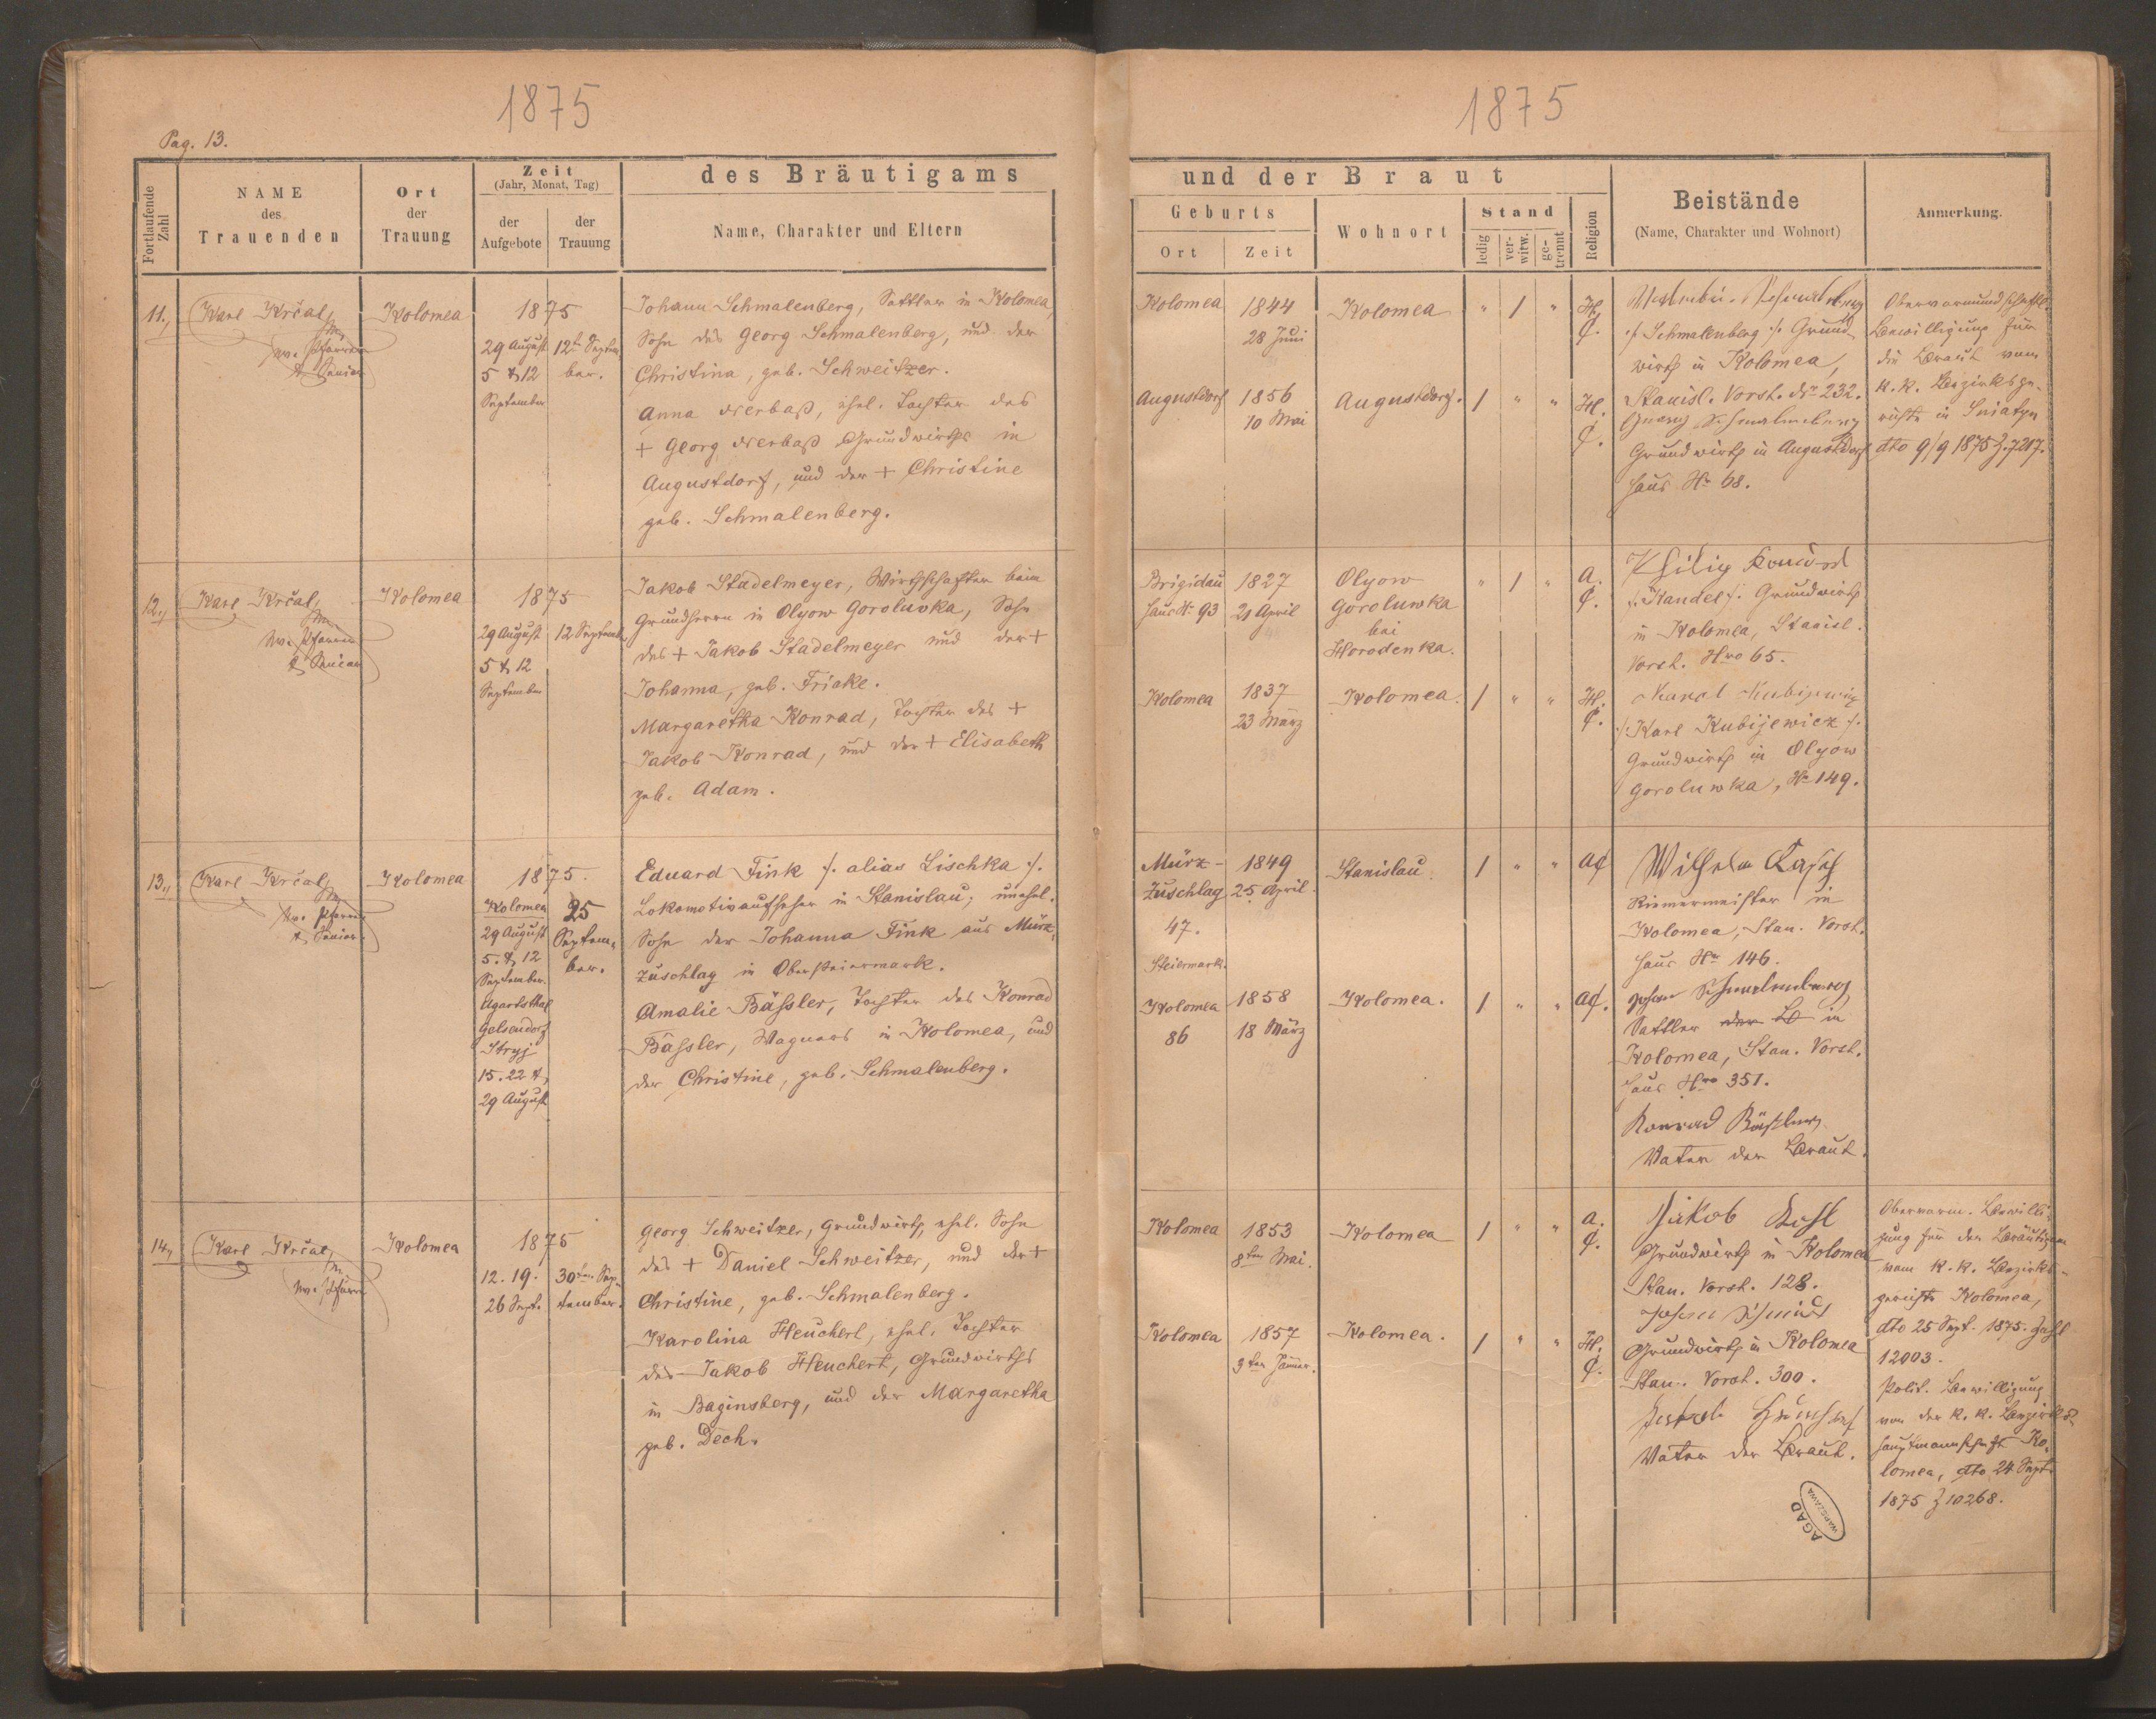 1875
Pag. 13.
Fortlaufende Zahl
NAME
des
Trauenden
Ort
der
Trauung
Zeit
(Jahr, Monat, Tag)
der
Aufgebote
der
Trauung
des Bräutigams
Name, Charakter und Eltern
11.,
Karl Krčal,
Pfarrer
& Senior
Kolomea
1875
29 August
5 & 12
September
12t Septem
ber.
Johann Schmalenberg, Sattler in Kolomea,
Sohn des Georg Schmalenberg, und der
Christina, geb. Schweitzer.
Anna Nerbaß, ehel. Tochter des
+ Georg Nerbaß Grundwirths in
Augustdorf, und der + Christine
geb. Schmalenberg.
12.,
Karl Krčal,
Pfarrer
& Senior
Kolomea
1875
29 August
5 & 12
September
12 Septemb
Jakob Stadelmeyer, Wirthschafter beim
Grundherrn in Olyow Goroluwka, Sohn
des + Jakob Stadelmeyer und der +
Johanna, geb. Fricke.
Margaretha Konrad, Tochter des +
Jakob Konrad, und der + Elisabeth
geb. Adam.
13.,
Karl Krčal,
Pfarrer
& Senior.
Kolomea
1875.
Kolomea
29 August
5. & 12
September.
Ugartsthal
Gelsendorf
Stryj
15. 22 &
29 August
25
Septem-
ber.
Eduard Fink /. alias Lischka /.
Lokomotivaufseher in Stanislau, unehel.
Sohn der Johanna Fink aus Mürz-
zuschlag in Obersteiermark.
Amalie Bäßler, Tochter des Konrad
Bäßler, Wagners in Kolomea, und
der Christine, geb. Schmalenberg.
14.,
Karl Krčal,
Pfarrer
Kolomea
1875
12. 19.
26 Sept.
30ten Sep-
tember.
Georg Schweitzer, Grundwirth, ehel. Sohn
des + Daniel Schweitzer, und der +
Christine, geb. Schmalenberg.
Karolina Heuchert, ehel. Tochter
des Jakob Heuchert, Grundwirths
in Baginsberg, und der Margaretha
geb. Dech.
1875
und der Braut
Geburts
Ort
Zeit
Wohnort
Stand
ledig
ver-
witw.
ge-
trennt
Religion
Beistände
(Name, Charakter und Wohnort)
Anmerkung.
Kolomea
1844
28 Juni
Kolomea
" / "
H.
C.
/. Schmalenberg ./. Grund-
wirth in Kolomea,
Stanisl. Vorst. Nr 232.
Augustdorf
1856
10 Mai
Augustdorf.
/ " "
H.
C.
Georg Schmalenberg
Grundwirth in Augustdorf
Haus Nr 68.
Obervormundschaftl.
Bewilligung für
die Braut vom
k. k. Bezirksge-
richte in Sniatyn
dto 9/9 1875 Z. 7217.
Brigidau
Haus Nr 93
1827
21 April
Olyow
Goroluwka
bei
Horodenka.
" / "
A.
C.
Philip
/. Kandel /. Grundwirth
in Kolomea, Stanisl.
Vorst. Hnro 65.
Kolomea
1837
23 März
Kolomea.
/ " "
H.
C.
Karol Kubijewicz
/. Karl Kubijewicz /.
Grundwirth in Olyow
Goroluwka, Nr 149.
Mürz-
zuschlag
47.
Steiermark.
1849
25 April.
Stanislau.
/ " "
AC
Wilhelm
Riemermeister in
Kolomea, Stan. Vorst.
Haus Nr 146.
Kolomea
86
1858
18 März
Kolomea.
/ " "
AC.
Johann Schmalenberg,
Sattler in
Kolomea, Stan. Vorst.
Haus Nro 351.
Konrad Bäßler,
Vater der Braut.
Kolomea
1853
8ten Mai.
Kolomea
/ " "
A.
C.
Jakob
Grundwirth in Kolomea
Stan. Vorst. 128.
Johann Schmidt
Kolomea
1857
3ten Jänner.
Kolomea.
/ " "
H.
C.
Grundwirth in Kolomea
Stan. Vorst. 300.
Jakob
Vater der Braut.
Oberworm. Bewilli-
gung für den Bräutigam
vom k. k. Bezirks-
gerichte Kolomea,
dto 25 Sept. 1875. Zahl
12003.
Polit. Bewilligung
von der k. k. Bezirks-
hauptmannschaft Ko-
lomea, dto 24 Sept.
1875 Z 10268.
AGAD
WARSZAWA